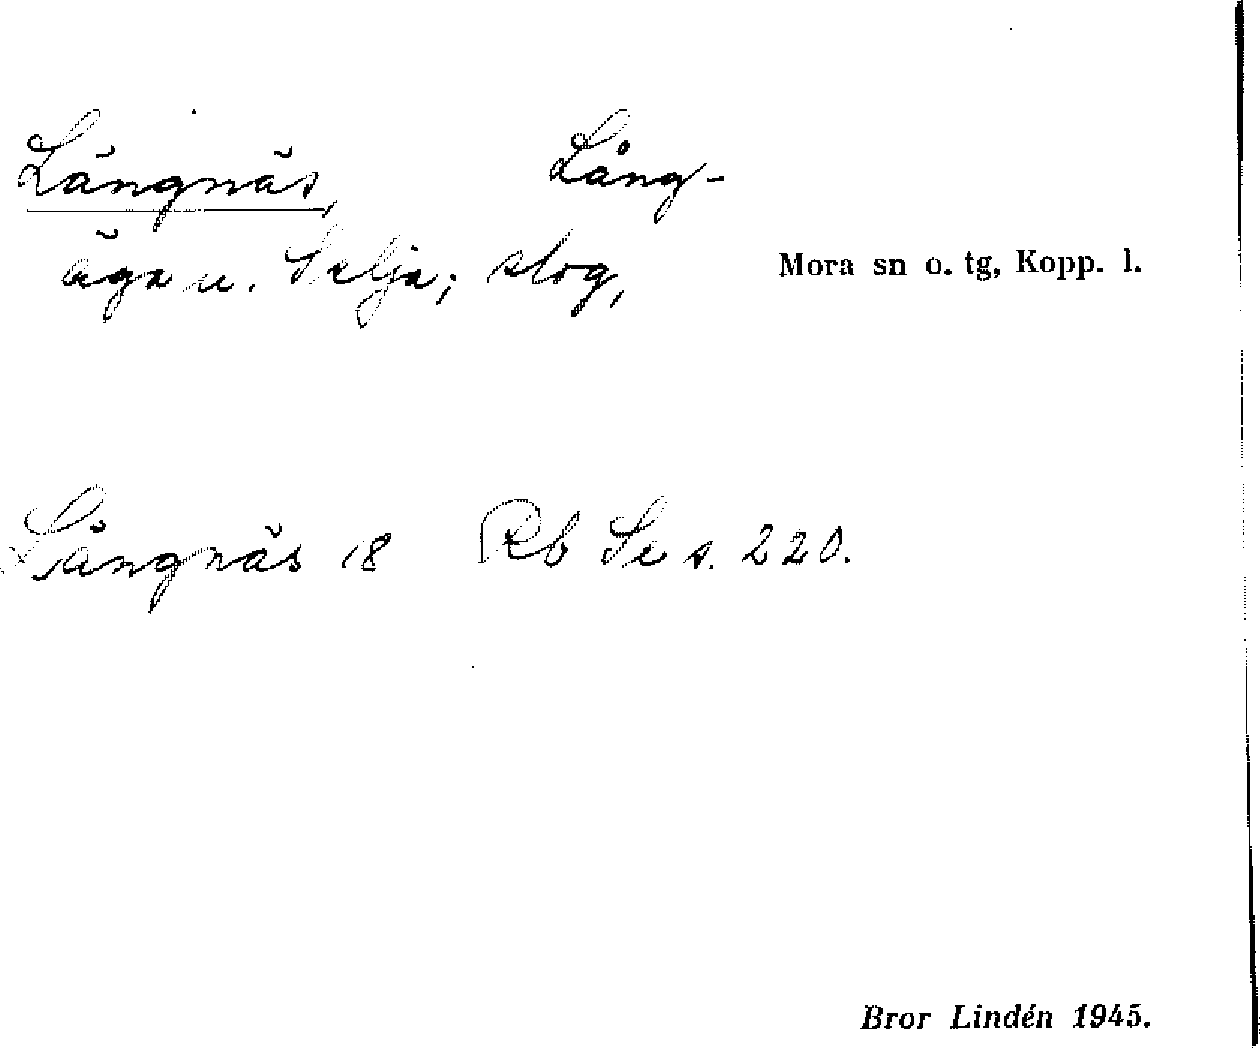 Långnäs, Lång-
äga u. Selja; slog,
Mora sn o. tg, Kopp. l.
Långnäs 18 Rb Se s. 220.
Bror Lindén 1945.